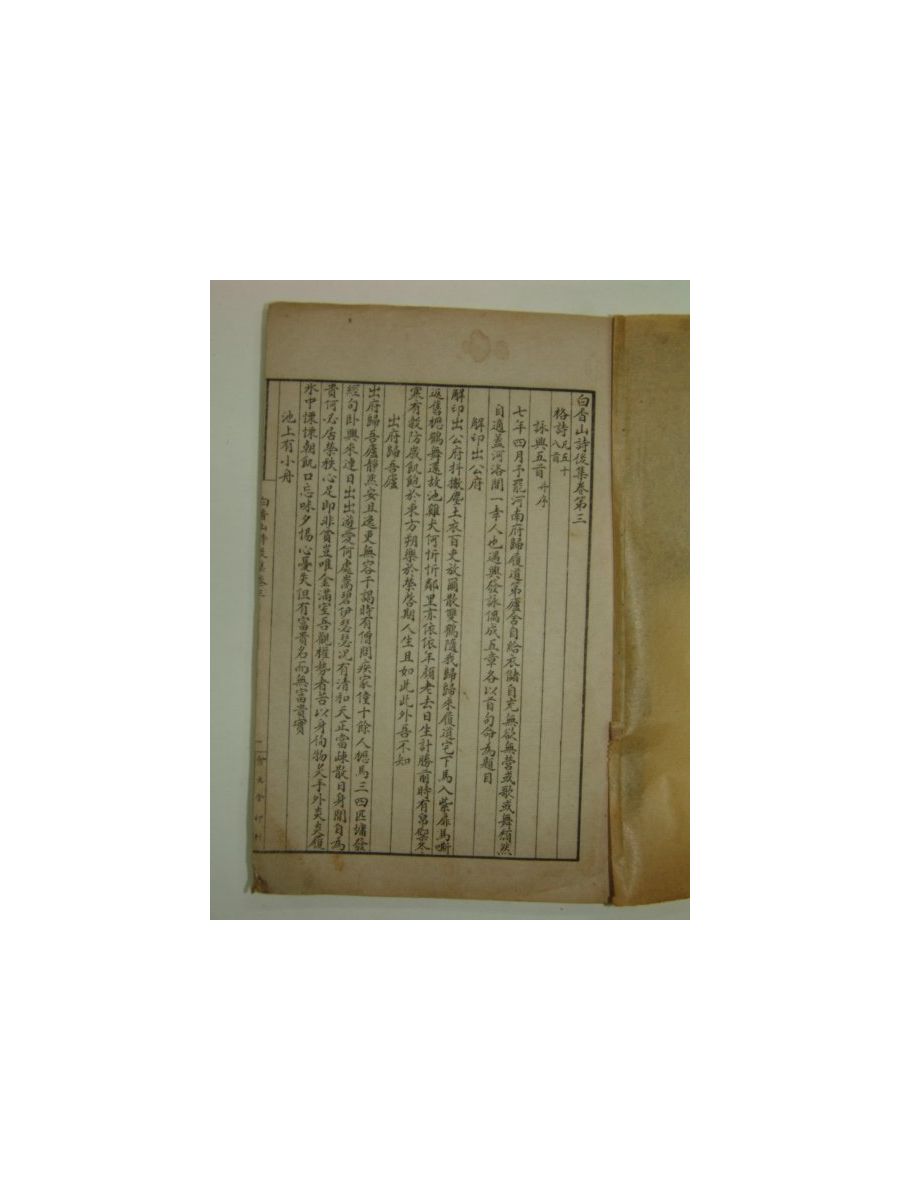 白香山詩後集卷第三
格詩凡五十八首
詠興五首并序
七年四月予罷河南府歸履道第廬舍自給衣儲自充無欲無營或歌或舞頹然
自適蓋河洛閒一幸人也遇興發詠偶成五章各以首句命為題目
解印出公府
解印出公府抖擻塵土衣百吏放爾散雙鶴隨我歸歸來履道宅下馬入柴扉馬嘶
返舊櫪鶴舞還故池雞犬何忻忻鄰里亦依依年顏老去日生計勝前時有帛禦冬
寒有穀防歲飢飽於東方朔樂於榮啓期人生且如此此外吾不知
出府歸吾廬
出府歸吾廬靜然安且逸更無客干謁時有僧問疾家僮十餘人櫪馬三四匹慵發
經旬臥興來連日出出遊愛何處嵩碧伊瑟瑟況有清和天正當疎散日身閒自為
貴何必居榮秩心足即非貧豈唯金滿室吾觀權勢者苦以身徇物炙手外炎炎履
氷中慄慄朝飢口忘味夕惕心憂失但有富貴名而無富貴實
池上有小舟
白香山詩後集卷三
一